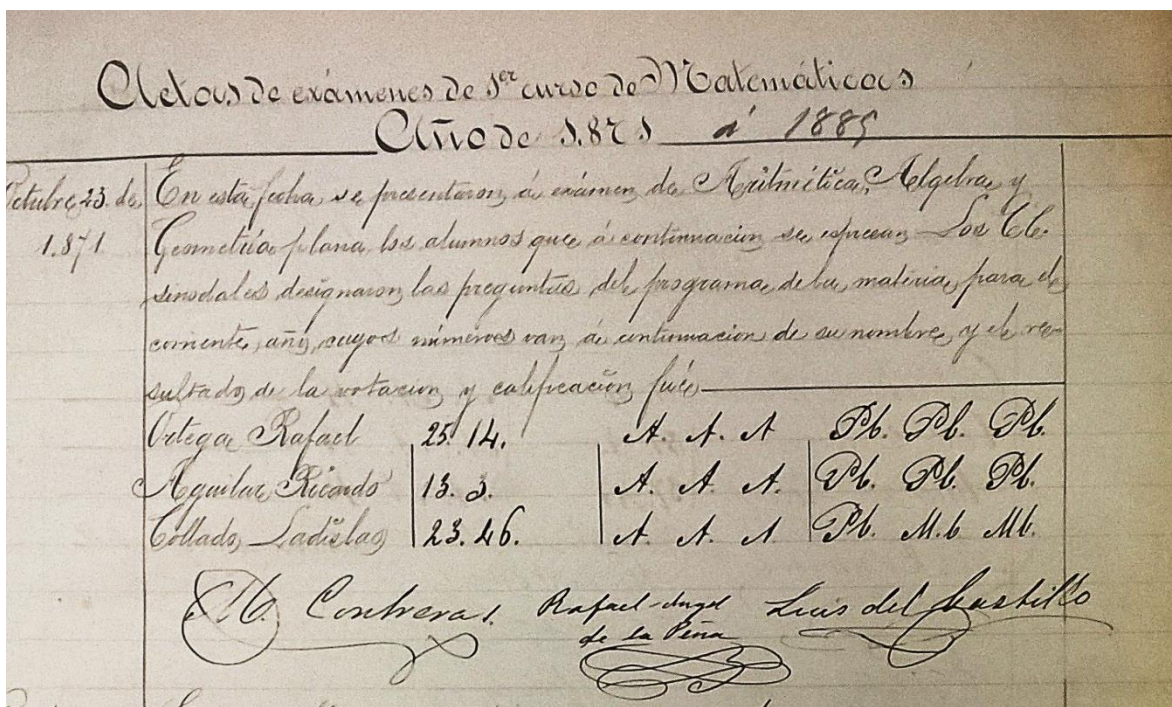 Actas de exámenes de 1er curso de Matemáticas
Año de 1.871 á 1885
Octubre 23 de
1.871.
En esta fecha se presentaron á exámen de Aritmética, Algebra y
Geometría plana los alumnos que á continuacion se espresan Los CC.
sinodales designaron las preguntas del programa de la materia, para el
corriente año, cuyos números van á continuacion de su nombre, y el re-
sultado de la votacion y calificacion fué
Ortega Rafael 25. 14. A. A. A Pb. Pb. Pb.
Aguilar Ricardo 13. 3. A. A. A. Pb. Pb. Pb.
Collado Ladislao 23. 46. A. A. A Pb. M.b Mb.
M. Contreras. Rafael Angel Luis del Castillo
de la Peña